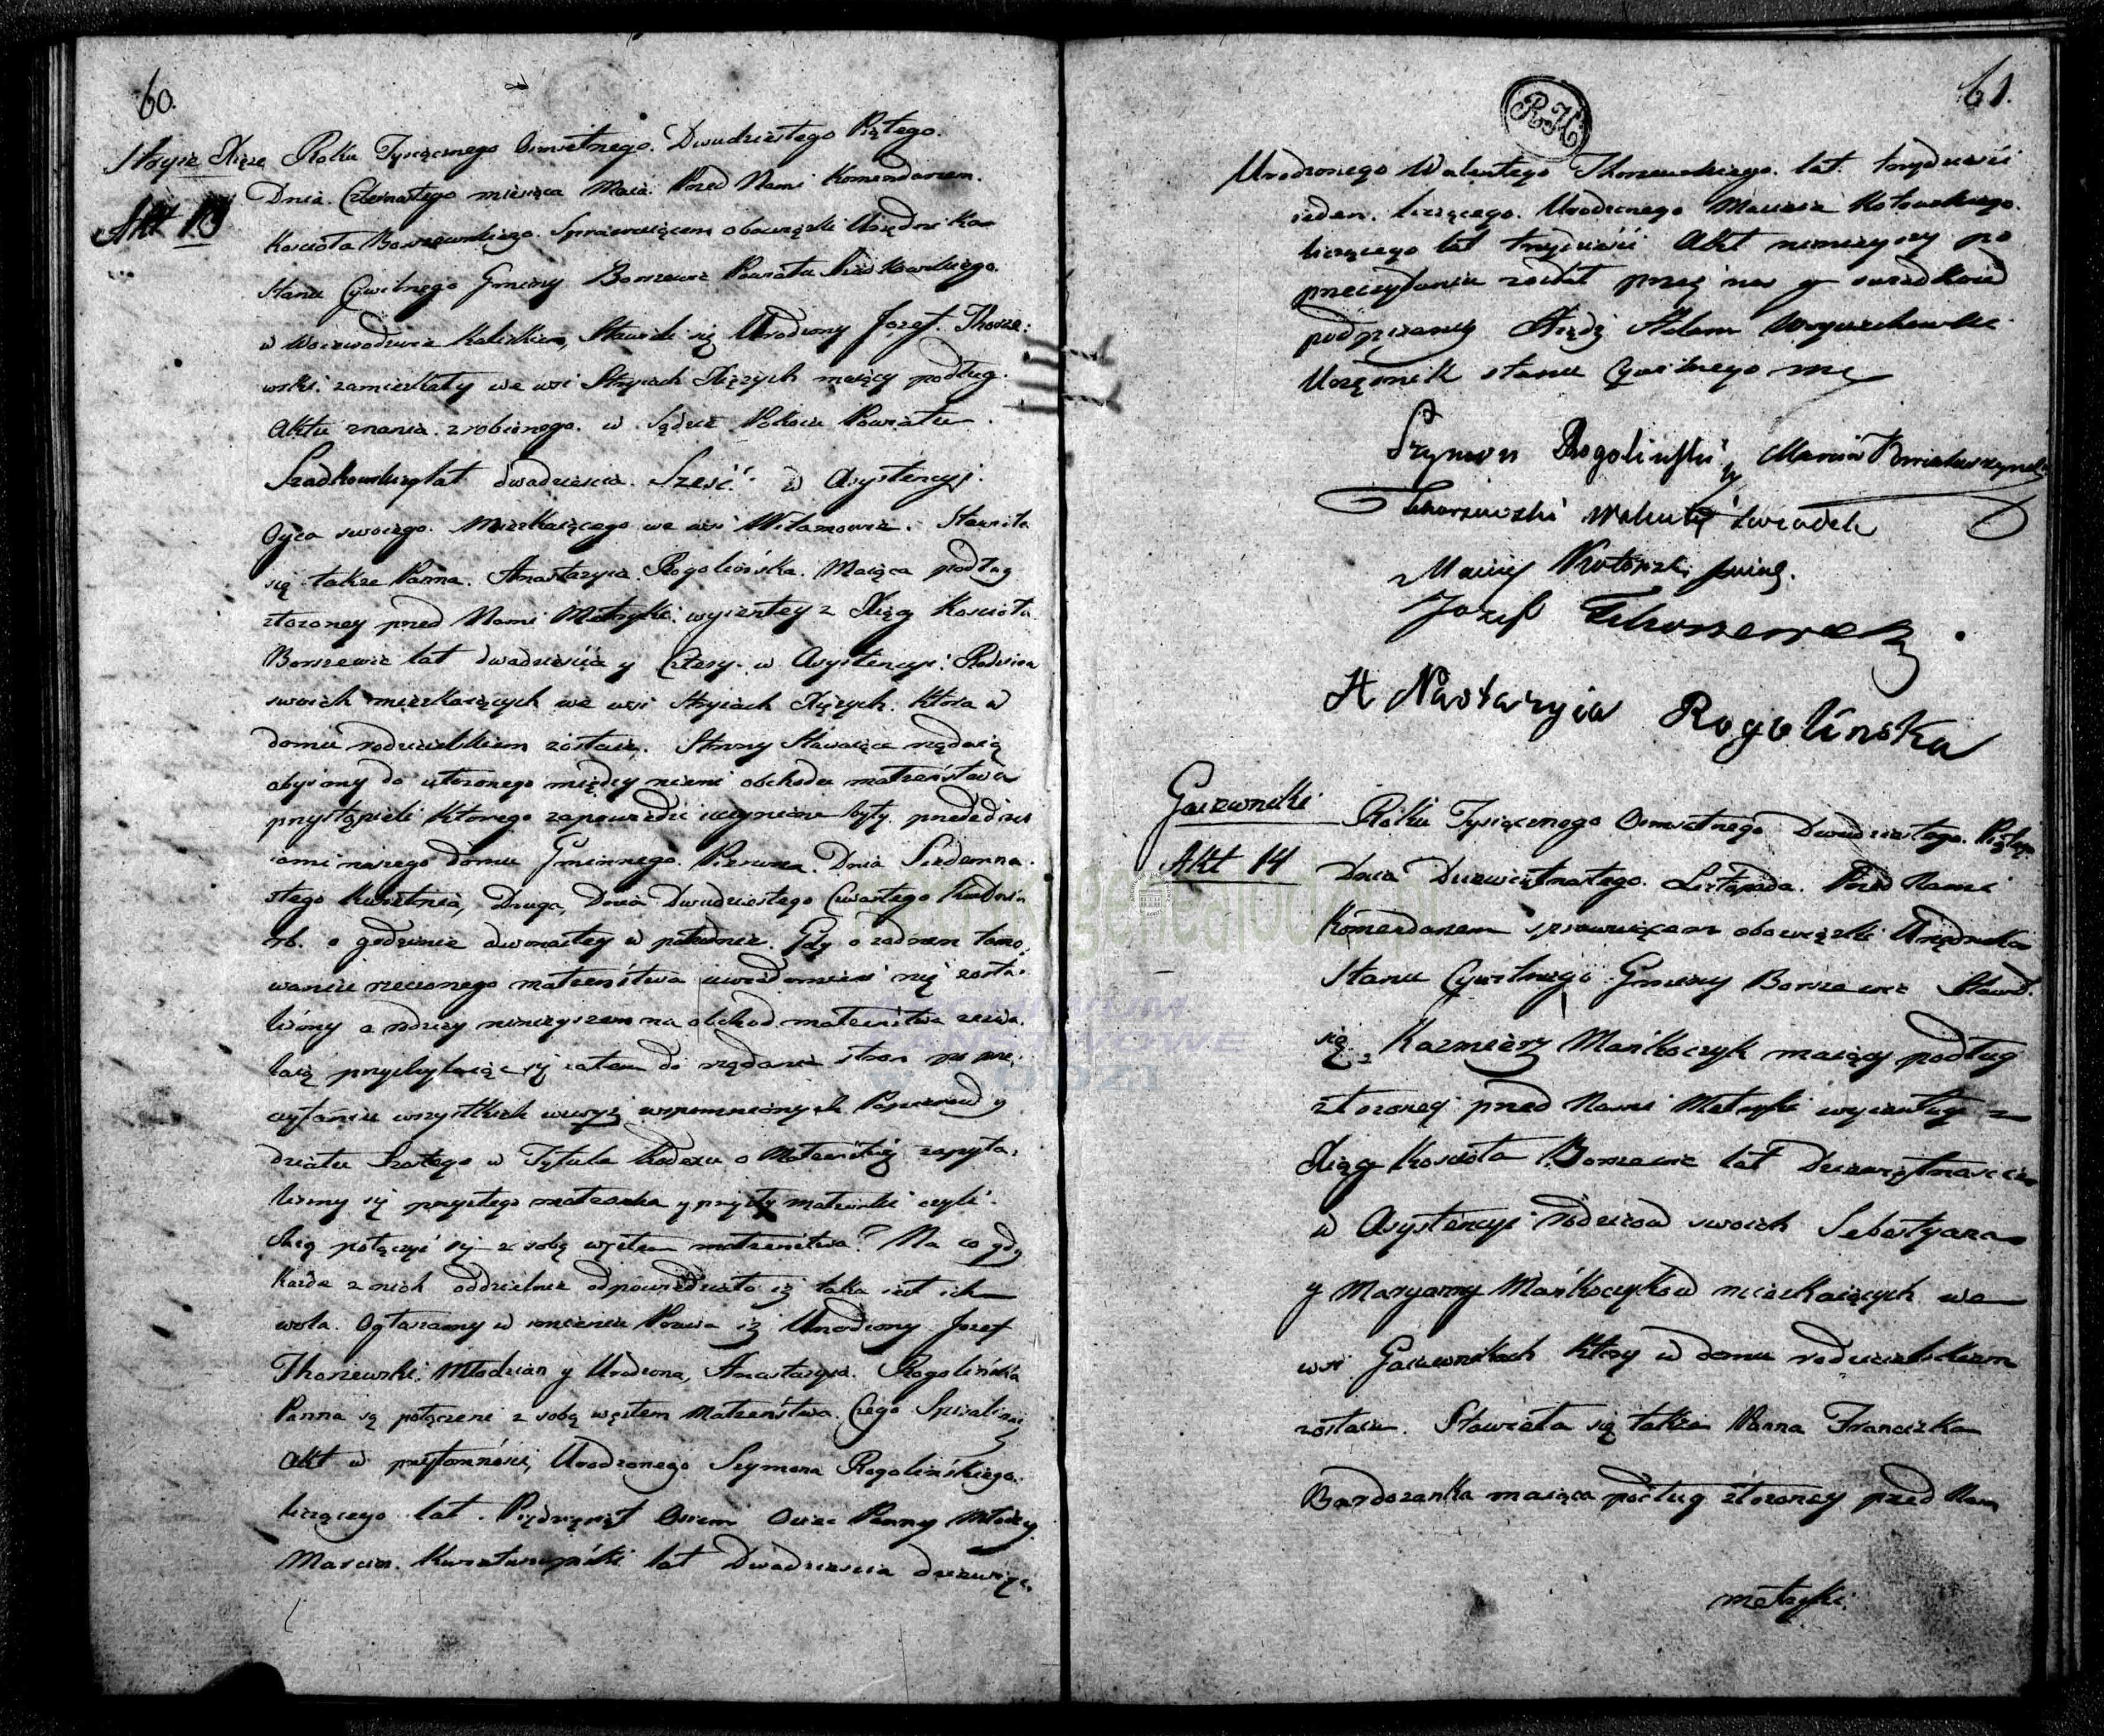 60.
Stryie Xięże Roku Tysiącznego Osmsetnego Dwudziestego Piątego.
Akt 13
Dnia Czternastego miesiąca Maia. Przed Nami Komendarzem.
Kościoła Borszewskiego. Sprawuiącem obowiązki Urzędnika
Stanu Cywilnego Gminy Borszewic Powiatu Szadkowskiego.
w Woiewodztwie Kaliskiem, Stawił się Urodzony Jozef. Thorze:
wski. zamieszkały we wsi Stryiach Xiężych maiący podług.
Aktu znania. zrobionego. w Sądzie Pokoiu Powiatu.
Szadkowskiego lat dwadzieścia. Sześć. w Asystencyi.
Oyca swoiego. Mieszkaiącego we wsi Wilamowie. Stawiła
się także Panna. Anastazyia. Rogolińska. Maiąca podług
złozoney przed Nami Metryki. wyiętey z Xiąg Kościoła
Borszewic lat dwadzieścia y Cztery. w Asystencyi. Rodziców
swoich mieszkaiących we wsi Stryiach Xiężych. która w
domu rodzicielskiem zostaie. Strony Stawaiące rządaią
abyśmy do ułozonego między niemi obchodu małzeństwa
przystąpieli którego zapowiedzi uczynione były przededrzw
iami naszego domu Gminnego. Pierwsza. Dnia Siedemna.
stego Kwietnia, Druga, Dnia Dwudziestego Czwartego Kwietnia
rb. o godzinie dwunastey w południe. Gdy o zadnem tamo
waniu rzeczonego małzeństwa uwiadomieni nię zosta.
liśmy a rodzicy ninieyszem na obchod małzeństwa zezwa.
laią przychylaiąc się zatem do rządania stron po prze,
czytaniu wszystkich wwyz wspomnionych Papierow y
działu Szostego w Tytule Kodexu o Małzeństwie zapyta,
liśmy się przyszłego małzonka y przyszły małzonki czyli.
chcą połączyć się z sobą węzłem małzeństwa? Na co gdy
Kazde z nich oddzielnie odpowiedziało iż taka iest ich
wola. Ogłaszamy w imieniu Prawa iż Urodzony Jozef
Thorzewski. Młodzian y Urodzona, Anastazyia. Rogolińska
Panna są połączeni z sobą węzłem Małzeństwa. Czego Spisaliśmy
Akt w przytomności, Urodzonego Szymona Rogolińskiego.
liczącego lat. Pięćdziesiąt Osiem Oyca Panny Młodey
Marcin. Kwiatuszyński lat Dwadzieścia dziewięć.
61.
RM
Urodzonego Walentego Thorzewskiego. lat. trzydzieści
ieden. liczącego. Urodzonego Macieia Kotowskiego.
liczącego lat trzydzieści Akt ninieyszy po
przeczytaniu został przez nas y swiadkow
podpisany Xiądz Adam
Urzędnik stanu Cywilnego mp
Szymon Rogoliński Marcin Kwiatuszyński
Thorzewski Walenty swiadek
Maciey Kotowski swiad.
Jozef Thorzewski
A Nastazyia Rogolinska
Gaiewniki Roku Tysiącznego Osmsetnego Dwudziestego. Piątego
Akt 14 Dnia Dziewiętnastego. Listopada. Przed Nami
Komendarzem sprawuiącem obowiązki Urzędnika
Stanu Cywilnego Gminy Borszewic Stawił.
się Kazmierz Mańkoczyk maiący podług
złozoney przed Nami Metryki wyiętey z
Xiąg Kościoła Borszewic lat Dziewiętnascie
w Asystencyi rodzicow swoich Sebestyana
y Maryanny Mańkoczykow mieszkaiących we
wsi Gaiewnikach ktory w domu rodzicielskiem
zostaie. Stawieła się także Panna Franciszka
Bardozanka maiąca podług złozoney przed Nam
metryki.